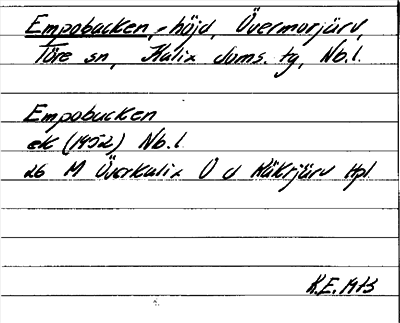 Empobacken, -höjd, Övermorjärv,
Töre sn, Kalix doms. tg, Nb.l.
Empobacken
ek (1952) Nb.l
26 M Överkalix O d Räktjärv Hpl.
K.E. 1973